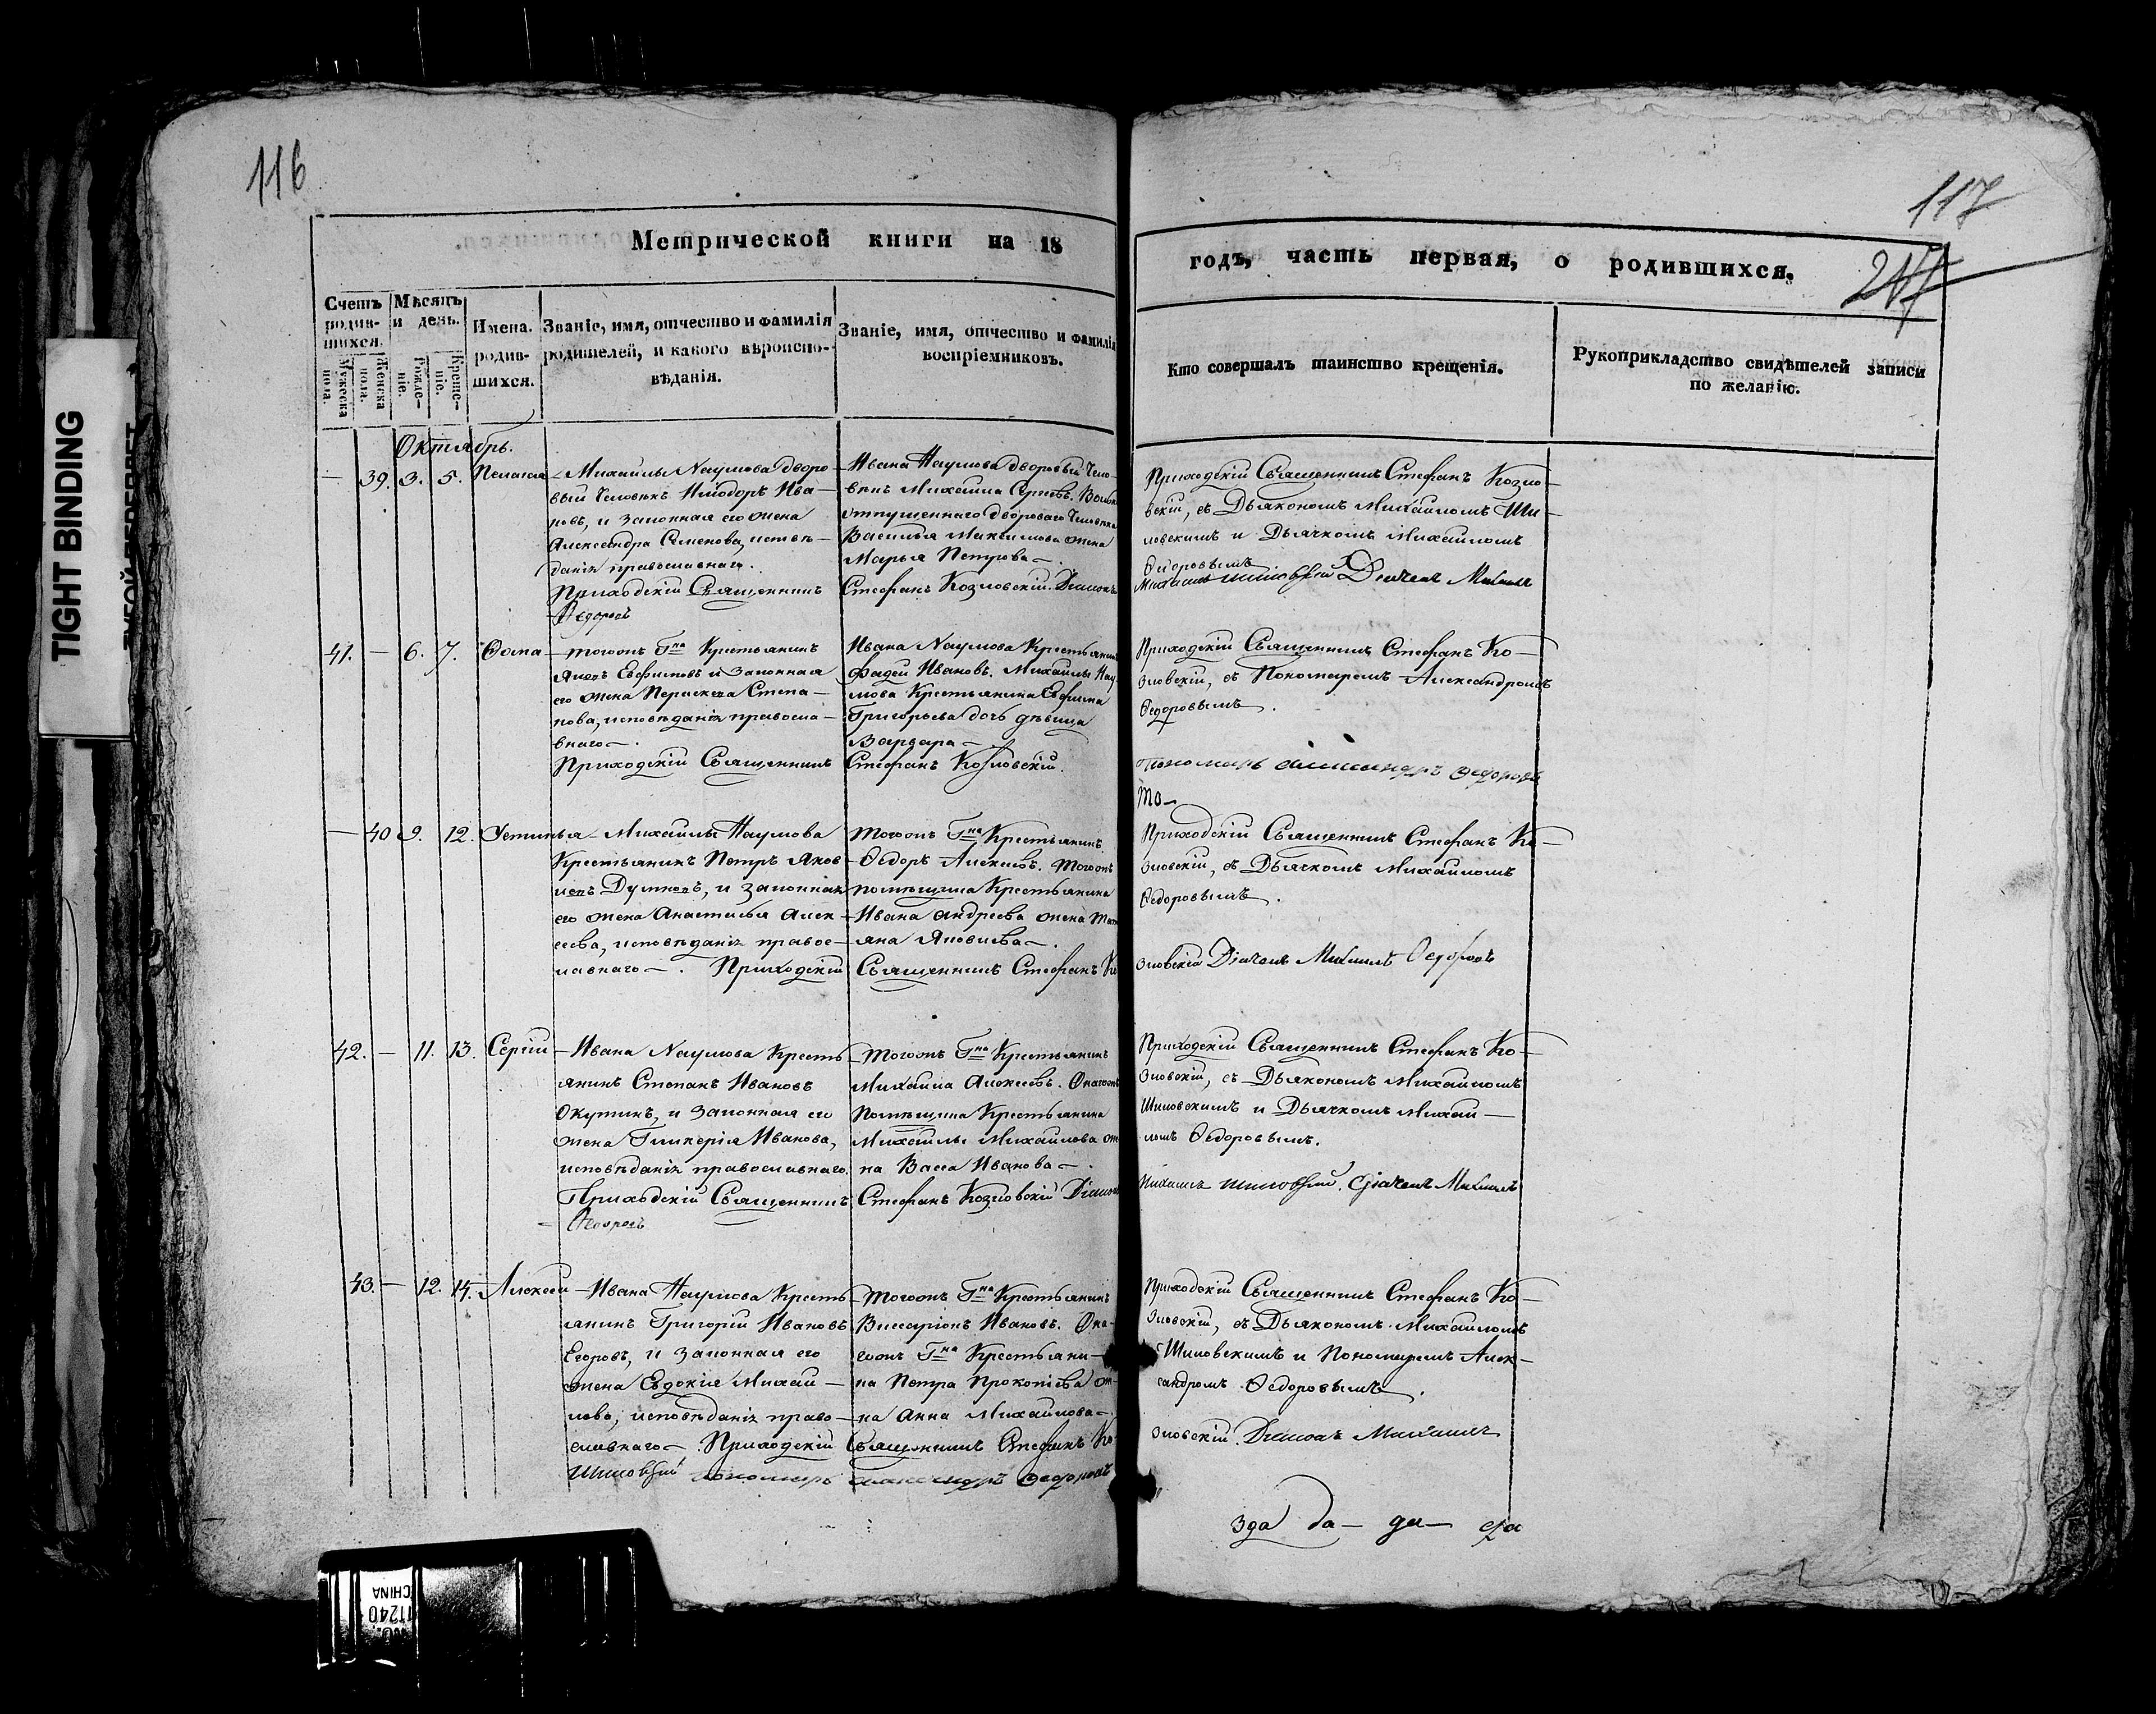 116
Метрической книги на 18
Счетъ родившихся.
Мѣсяцъ и день.
Имена родившихся.
Званіе, имя, отчество и фамилія родителей, и какого вѣроисповѣданія.
Званіе, имя, отчество и фамилія воспріемниковъ.
Мужеска пола.
Женска пола.
Рожденіе.
Крещеніе.
Октябрь.
— 39. 3. 5. Пелагія
Михайлы Наумова дворо-
вый человѣкъ Исидоръ Ива-
новъ, и законная его жена
Александра Семенова, исповѣ-
данія православнаго.
Приходскій Священникъ
Федоровъ
Ивана Наумова дворовый чело-
вѣкъ Михаила Сергѣевъ.
отпущеннаго двороваго человѣка
Василья Максимова жена
Марья Петрова —.
Стефанъ Козловскій. Діаконъ
41. — 6. 7. Ѳома
тогожъ Гна Крестьянинъ
Яковъ Евфимовъ и законная
его жена Параскева Степа-
нова, исповѣданія правосла-
внаго —.
Приходскій Священникъ
Ивана Наумова Крестьянинъ
Фадей Ивановъ. Михайлы Нау-
мова Крестьянина Евфима
Григорьева дочь дѣвица
Варвара —
Стефанъ Козловскій.
— 40 9. 12. Устинья
Михайлы Наумова
Крестьянинъ Петръ Яков-
левъ Думновъ, и законная
его жена Анастасья Алек-
сеева, исповѣданія правос-
лавнаго —. Приходскій
тогожъ Гна Крестьянинъ
Ѳедоръ Алексеевъ. тогожъ
помѣщика Крестьянина
Ивана Андреева жена Тать-
яна Яковлева —.
Священникъ Стефанъ Ко
42. — 11. 13. Сергій
Ивана Наумова Кресть-
янинъ Степанъ Ивановъ
Окутинъ, и законная его
жена Гликерія Иванова,
исповѣданія православнаго.
Приходскій Священникъ
Федоровъ
тогожъ Гна Крестьянинъ
Михаила Алексеевъ. Онагожъ
Помѣщика Крестьянина
Михайлы Михайлова же
на Васса Иванова —.
Стефанъ Козловскій Діаконъ
43. — 12. 14. Алексей
Ивана Наумова Кресть-
янинъ Григорій Ивановъ
Егоровъ, и законная его
жена Евдокія Михай-
лова, исповѣданія право-
славнаго —. Приходскій
Шиловскій пономарь
тогожъ Гна Крестьянинъ
Виссаріонъ Ивановъ. Она-
гожъ Гна Крестьяни-
на Петра Прокопіева же-
на Анна Михайлова —.
Священникъ Стефанъ Ко
Александръ Федоровъ
117
годъ, часть первая, о родившихся.
217
Кто совершалъ таинство крещенія.
Рукоприкладство свидѣтелей записи по желанію.
Приходскій Священникъ Стефанъ Козло-
вскій, съ Дьякономъ Михаиломъ Ши-
ловскимъ и Дьячкомъ Михаиломъ
Ѳедоровымъ
Михаилъ Шиловскій Дьячекъ Михаилъ
Приходскій Священникъ Стефанъ Ко-
зловскій, съ Пономаремъ Александромъ
Ѳедоровымъ.
пономарь Александръ Федоровъ
то —
Приходскій Священникъ Стефанъ Ко-
зловскій, съ Дьячкомъ Михаиломъ
Ѳедоровымъ.
зловскій Дьячекъ Михаилъ Ѳедоровъ
Приходскій Священникъ Стефанъ Ко-
зловскій, съ Дьякономъ Михаиломъ
Шиловскимъ и Дьячкомъ Михаи-
ломъ Ѳедоровымъ.
Михаилъ Шиловскій. Дьячекъ Михаилъ
Приходскій Священникъ Стефанъ Ко-
зловскій, съ Дьякономъ Михаиломъ
Шиловскимъ и Пономаремъ Алек-
сандромъ Ѳедоровымъ.
зловскій. Діаконъ Михаилъ
TIGHT BINDING
11240
CHINA